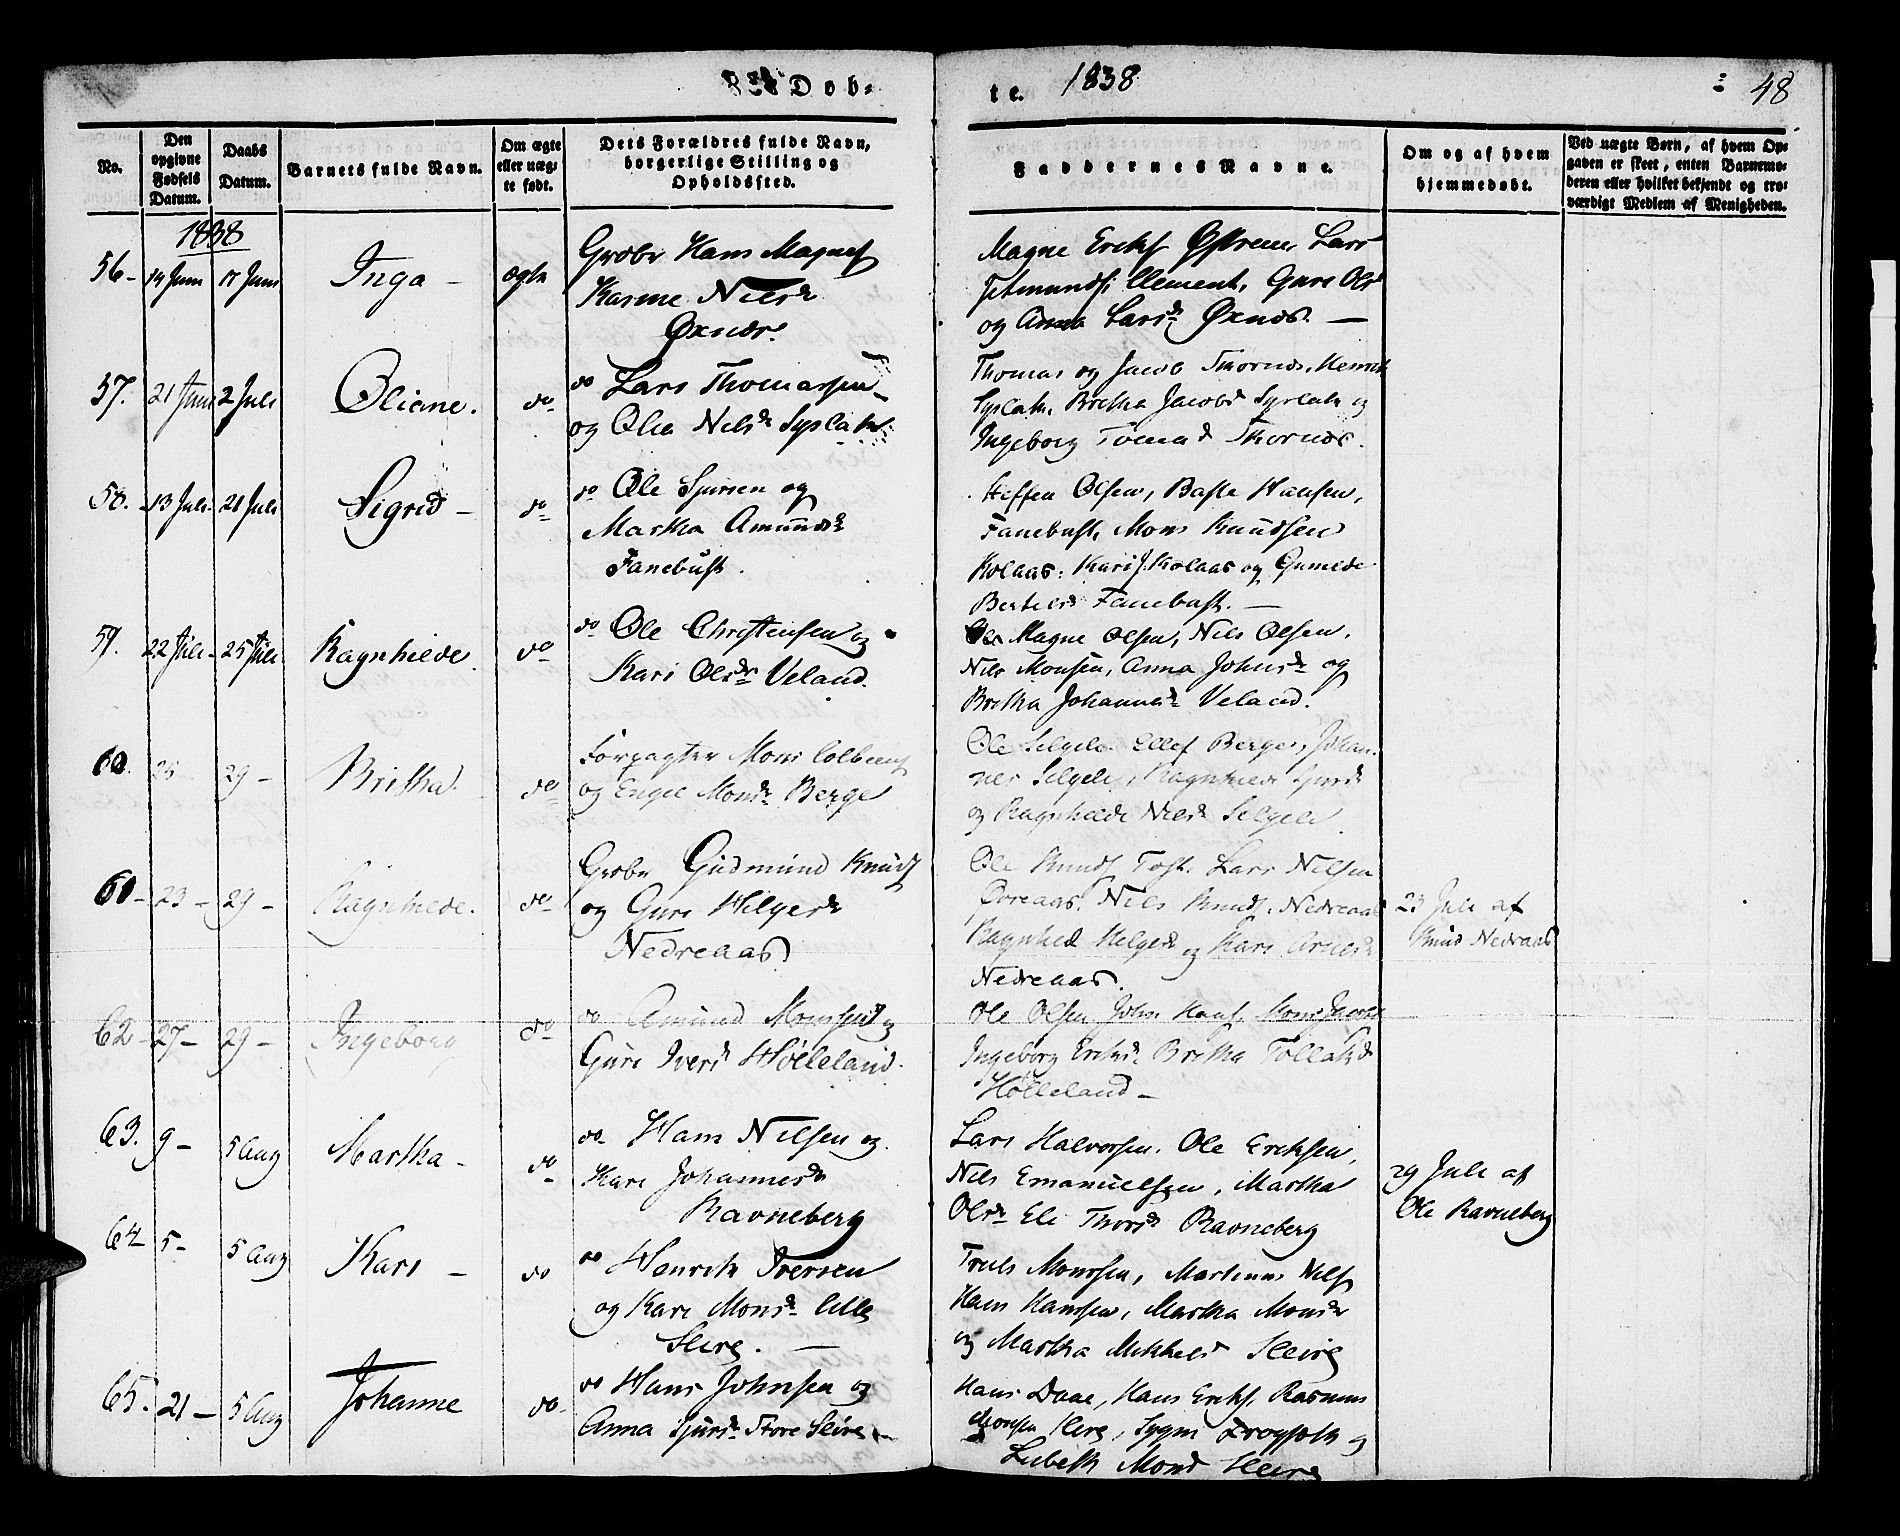 Døb-
te. 1838
48
No.
Den opgivne Fødsels Datum.
Daabs Datum.
Barnets fulde Navn.
Om ægte eller uægte født.
Dets Forældres fulde Navn, borgerlige Stilling og Opholdssted.
Faddernes Navne.
Om og af hvem hjemmedøbt.
Ved uægte Børn, af hvem Opgaven er skeet, enten Barnemoderen eller hvilket bekjendt og troværdigt Medlem af Menigheden.
1838
56- 14 Juni 17 Juni Inga - ægte
Grdbr Hans Magnes
Karine Nilsd
Øxnæs.
Magne Eriks Lars
Clement, Guro Ols
og Anna Larsd Øxnæs. -
57. 21 Juni 2 Juli Oliane. do
do Lars Thomassen
og Olia Nilsd Syslak
Thomas og Jacob Thornæs, Henrik
Syslak, Britha Jacobsd Syslak og
Ingeborg Tomasd Thornæs.
58. 13 Juli 21 Juli Sigrid - do
do Ole Sjursen og
Martha Amundsd
Fanebust.
Steffen Olsen, Baste Hansen,
Fanebust, Mons Knudsen
Kolaas, Kari J. Kolaas og Gunilde
Bertelsd Fanebust. -
59. 22 Juli - 25 Juli Ragnhilde. do
do Ole Christensen og
Kari Olsdr Veland.
Magne Olsen, Nils Olsen,
Nils Monsen, Anna Johnsd og
Britha Johannsd Veland.
60. 25 29 - Britha. do
Forpagter Mons Colbens
og Engel Monsd Berge
Ole Selgele. Ellef Berge, Johan-
nes Selgele, Ragnhilde Sjursd
og Ragnhilde Nilsd Selgele
61 - 23 - 29 - Ragnhilde. do
Grdbr Gudmund Knuds
og Guri Helgesd
Nedreaas
Ole Knuds Toft. Lars Nilsen
Øvreaas. Nils Knuds. Nedreaas
Ragnhild Helgesd og Kari Arnesd
Nedreaas.
23 Juli af
Knud Nedraas
62 - 27 - 29 - Ingeborg do
do Amund Monsen og
Guri Iversd Hølleland.
Ole Olsen John Hans. Mons Jacobs
Ingeborg Eriksd. Britha Tollaksd
Hølleland -
63. 9 - 5 Aug Martha - do
do Hans Nilsen og
Kari Johannesd
Ravneberg
Lars Halvorsen. Ole Eriksen,
Nils Emanuelsen, Martha
Olsd Eli Thorsd Ravneberg
29 Juli af
Ole Ravneberg
64 5- 5 Aug Kari - do
do Henrik Iversen
og Kari Monsd lille
Sleire. -
Truls Monssen, Martinus Nils
Hans Hanssen, Martha Monsd
og Martha Mikkelsd Sleire
65. 21 - 5 Aug Johanne do
do Hans Johnsen og
Anna Sjursd Store Sleire -
Hans Daae, Hans Eriks, Rasmus
Monsen Sleire, og
Lisbeth Monsd Sleire